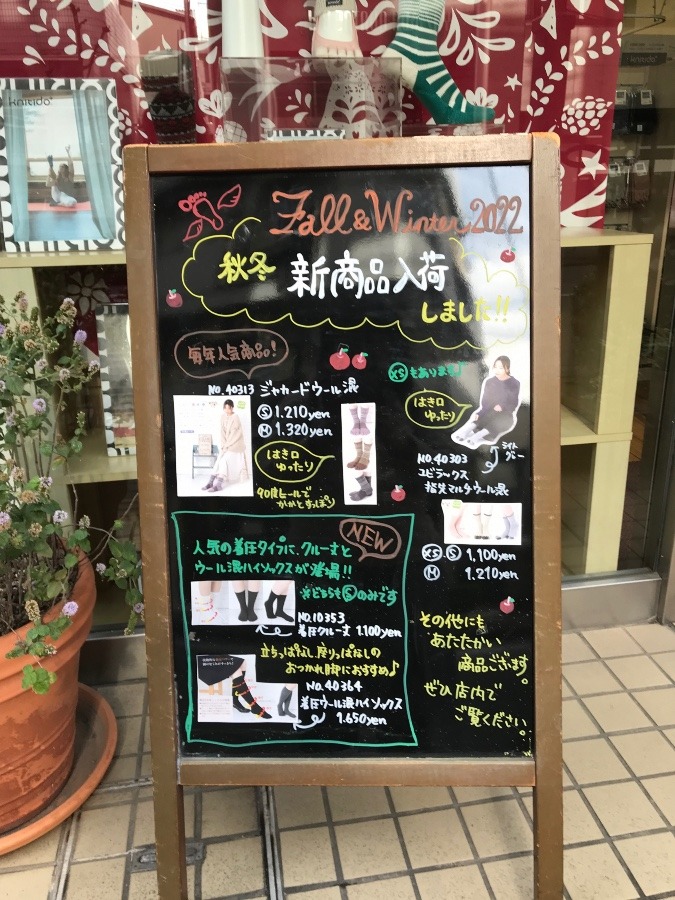 knitido
Fall & Winter 2022
秋冬 新商品入荷
しました!!
毎年人気商品!
No.40313 ジャカードウール混
Ⓢ 1.210yen
Ⓜ 1.320yen
はき口
ゆったり
90度ヒールで
かかとすっぽり
XSもあります♪
はき口
ゆったり
ライト
グレー
No.40303
ユビラックス
指先マルチウール混
XS Ⓢ 1,100yen
Ⓜ 1.210yen
NEW
人気の着圧タイプに、クルー丈と
ウール混ハイソックスが登場!!
※どちらもⓈのみです
No.10353
着圧クルー丈 1.100yen
立ちっぱなし、座りっぱなしの
おつかれ脚におすすめ♪
No.40364
着圧ウール混ハイソックス
1.650yen
その他にも
あたたかい
商品ございます。
ぜひ店内で
ご覧ください。